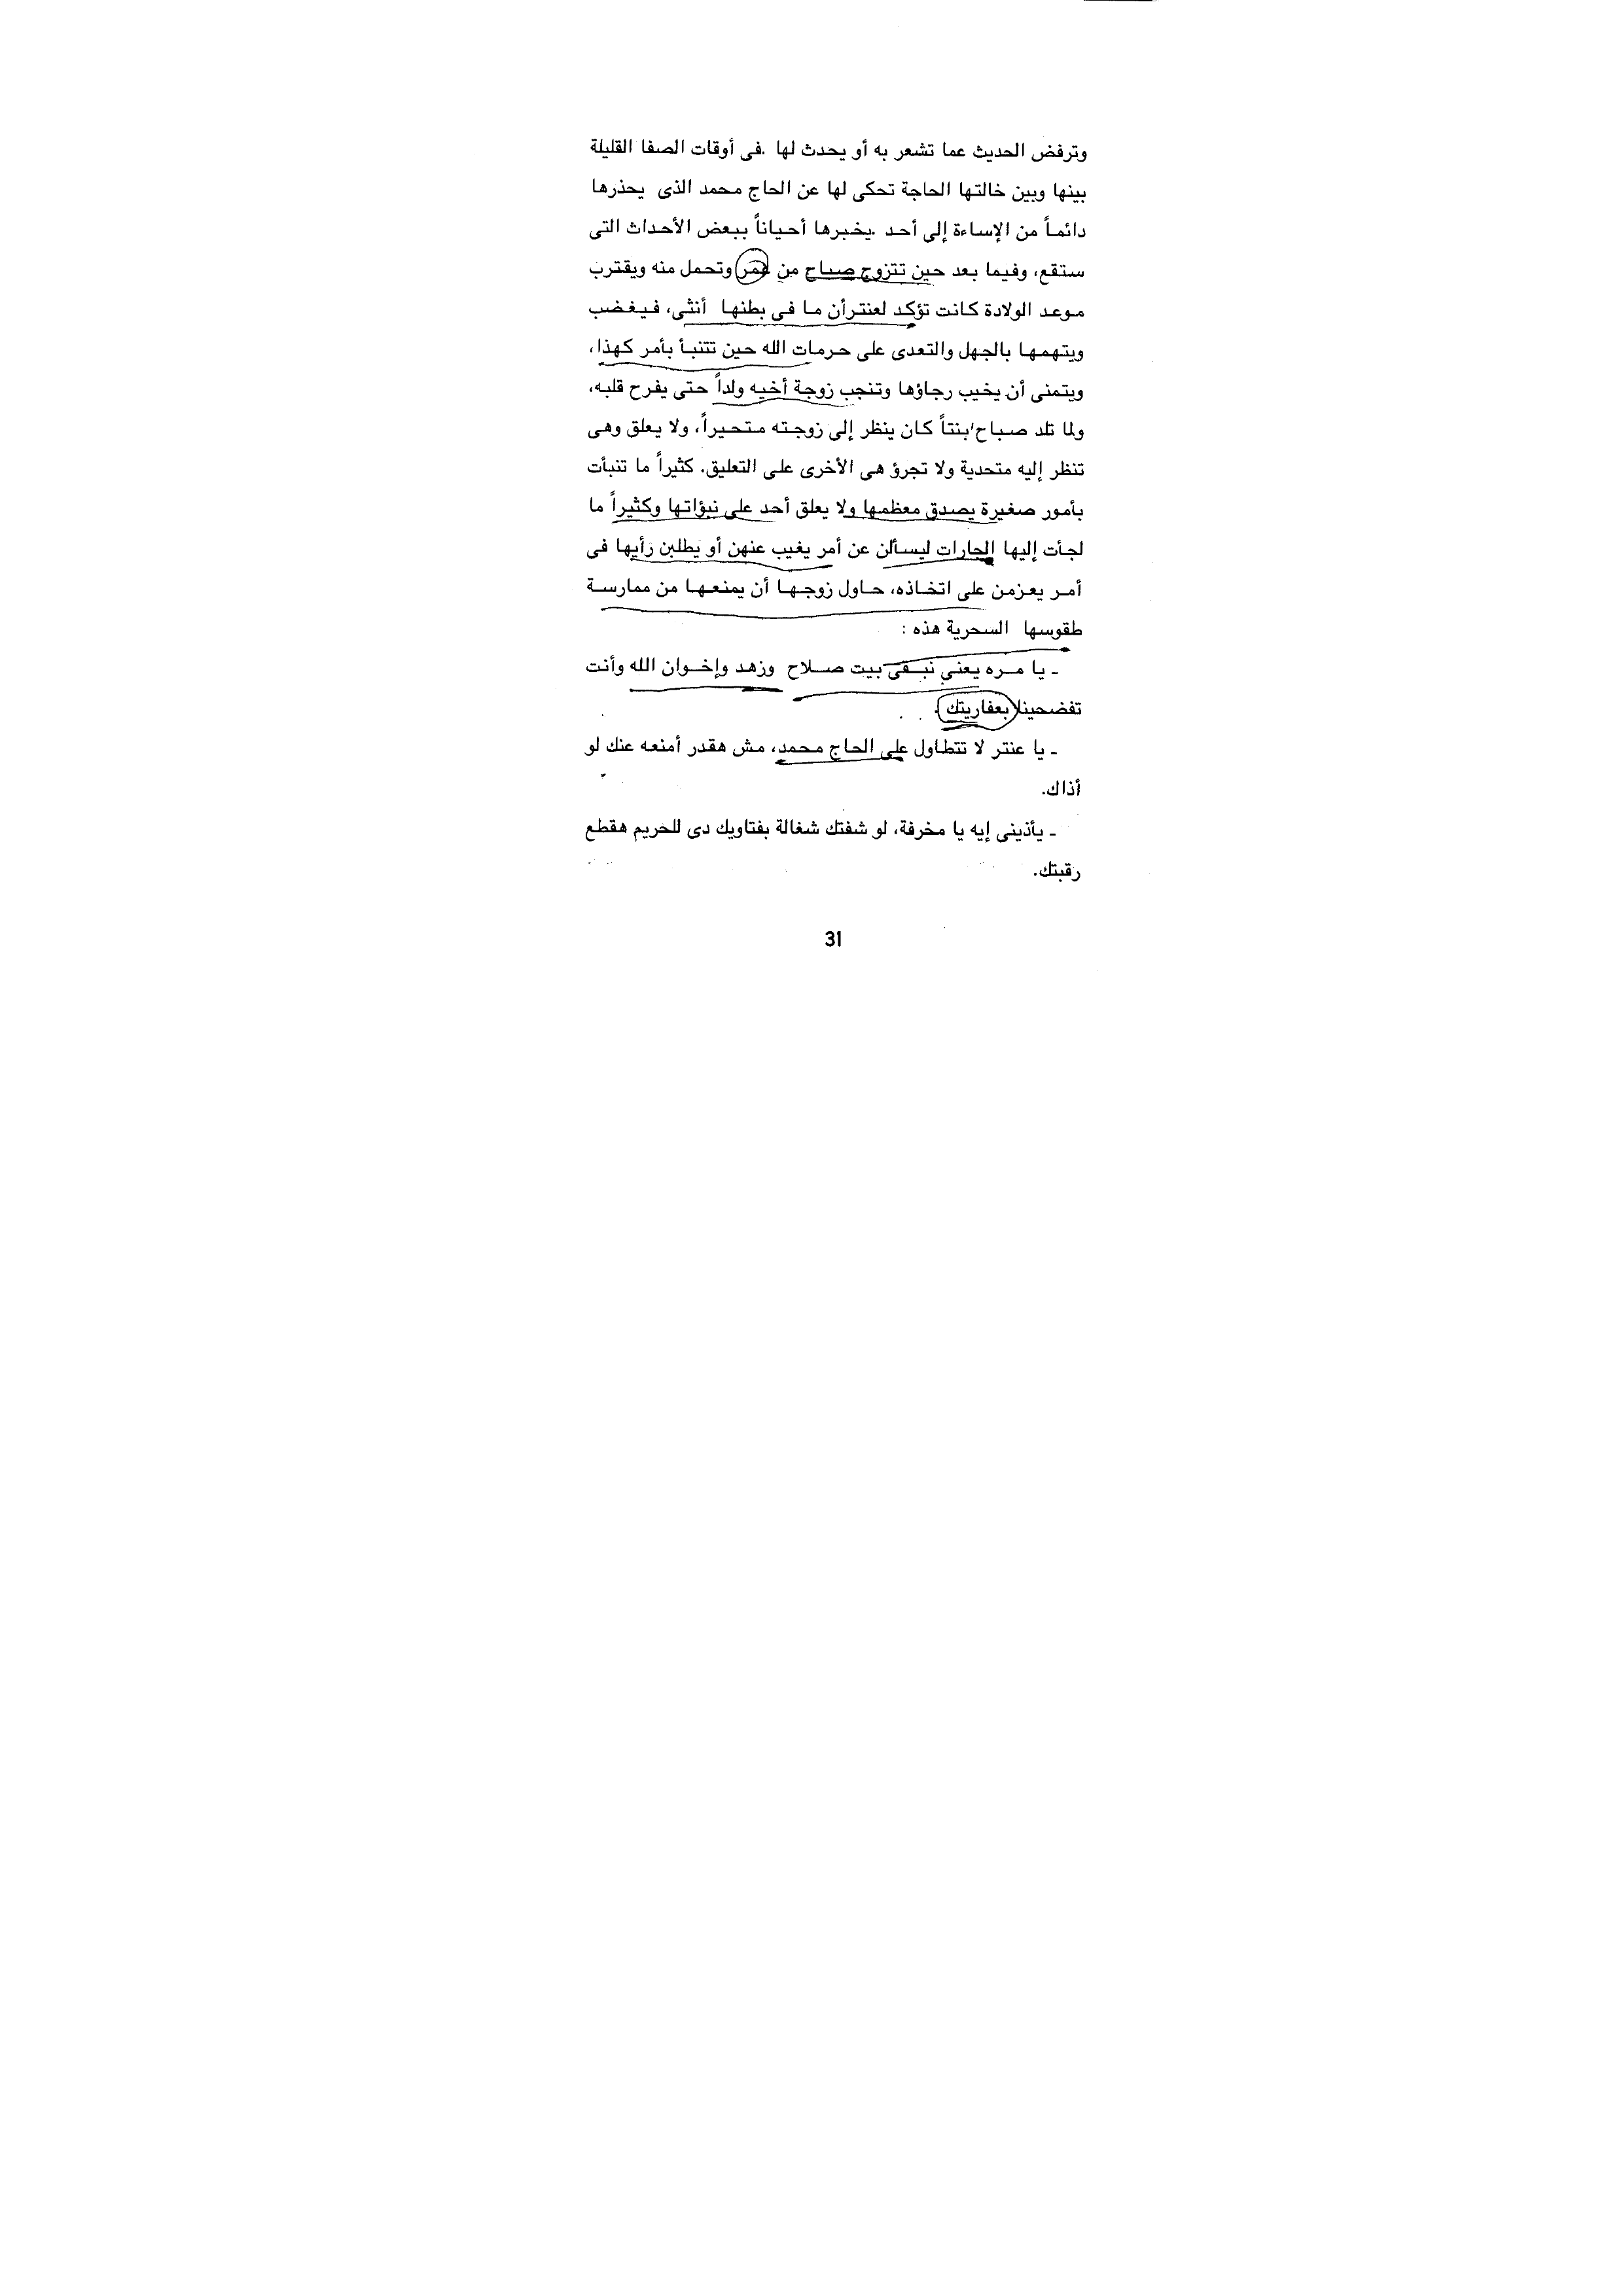 وترفض الحديث عما تشعر به أو يحدث لها .فى أوقات الصفا القليلة
بينها وبين خالتها الحاجة تحكى لها عن الحاج محمد الذى يحذرها
دائماً من الإساءة إلى أحد .يخبرها أحياناً ببعض الأحداث التى
ستقع، وفيما بعد حين تتزوج صباح من عمر وتحمل منه ويقترب
موعد الولادة كانت تؤكد لعنترأن ما فى بطنها أنثى، فيغضب
ويتهمها بالجهل والتعدى على حرمات الله حين تتنبأ بأمر كهذا،
ويتمنى أن يخيب رجاؤها وتنجب زوجة أخيه ولداً حتى يفرح قلبه،
ولما تلد صباح بنتاً كان ينظر إلى زوجته متحيراً، ولا يعلق وهى
تنظر إليه متحدية ولا تجرؤ هى الأخرى على التعليق. كثيراً ما تنبأت
بأمور صغيرة يصدق معظمها ولا يعلق أحد على نبؤاتها وكثيراً ما
لجأت إليها الجارات ليسألن عن أمر يغيب عنهن أو يطلبن رأيها فى
أمر يعزمن على اتخاذه، حاول زوجها أن يمنعها من ممارسة
طقوسها السحرية هذه :
ـ يا مره يعنى نبقى بيت صلاح وزهد وإخوان الله وأنت
تفضحينا بعفاريتك.
ـ يا عنتر لا تتطاول على الحاج محمد، مش هقدر أمنعه عنك لو
أذاك.
ـ يأذينى إيه يا مخرفة، لو شفتك شغالة بفتاويك دى للحريم هقطع
رقبتك.
31